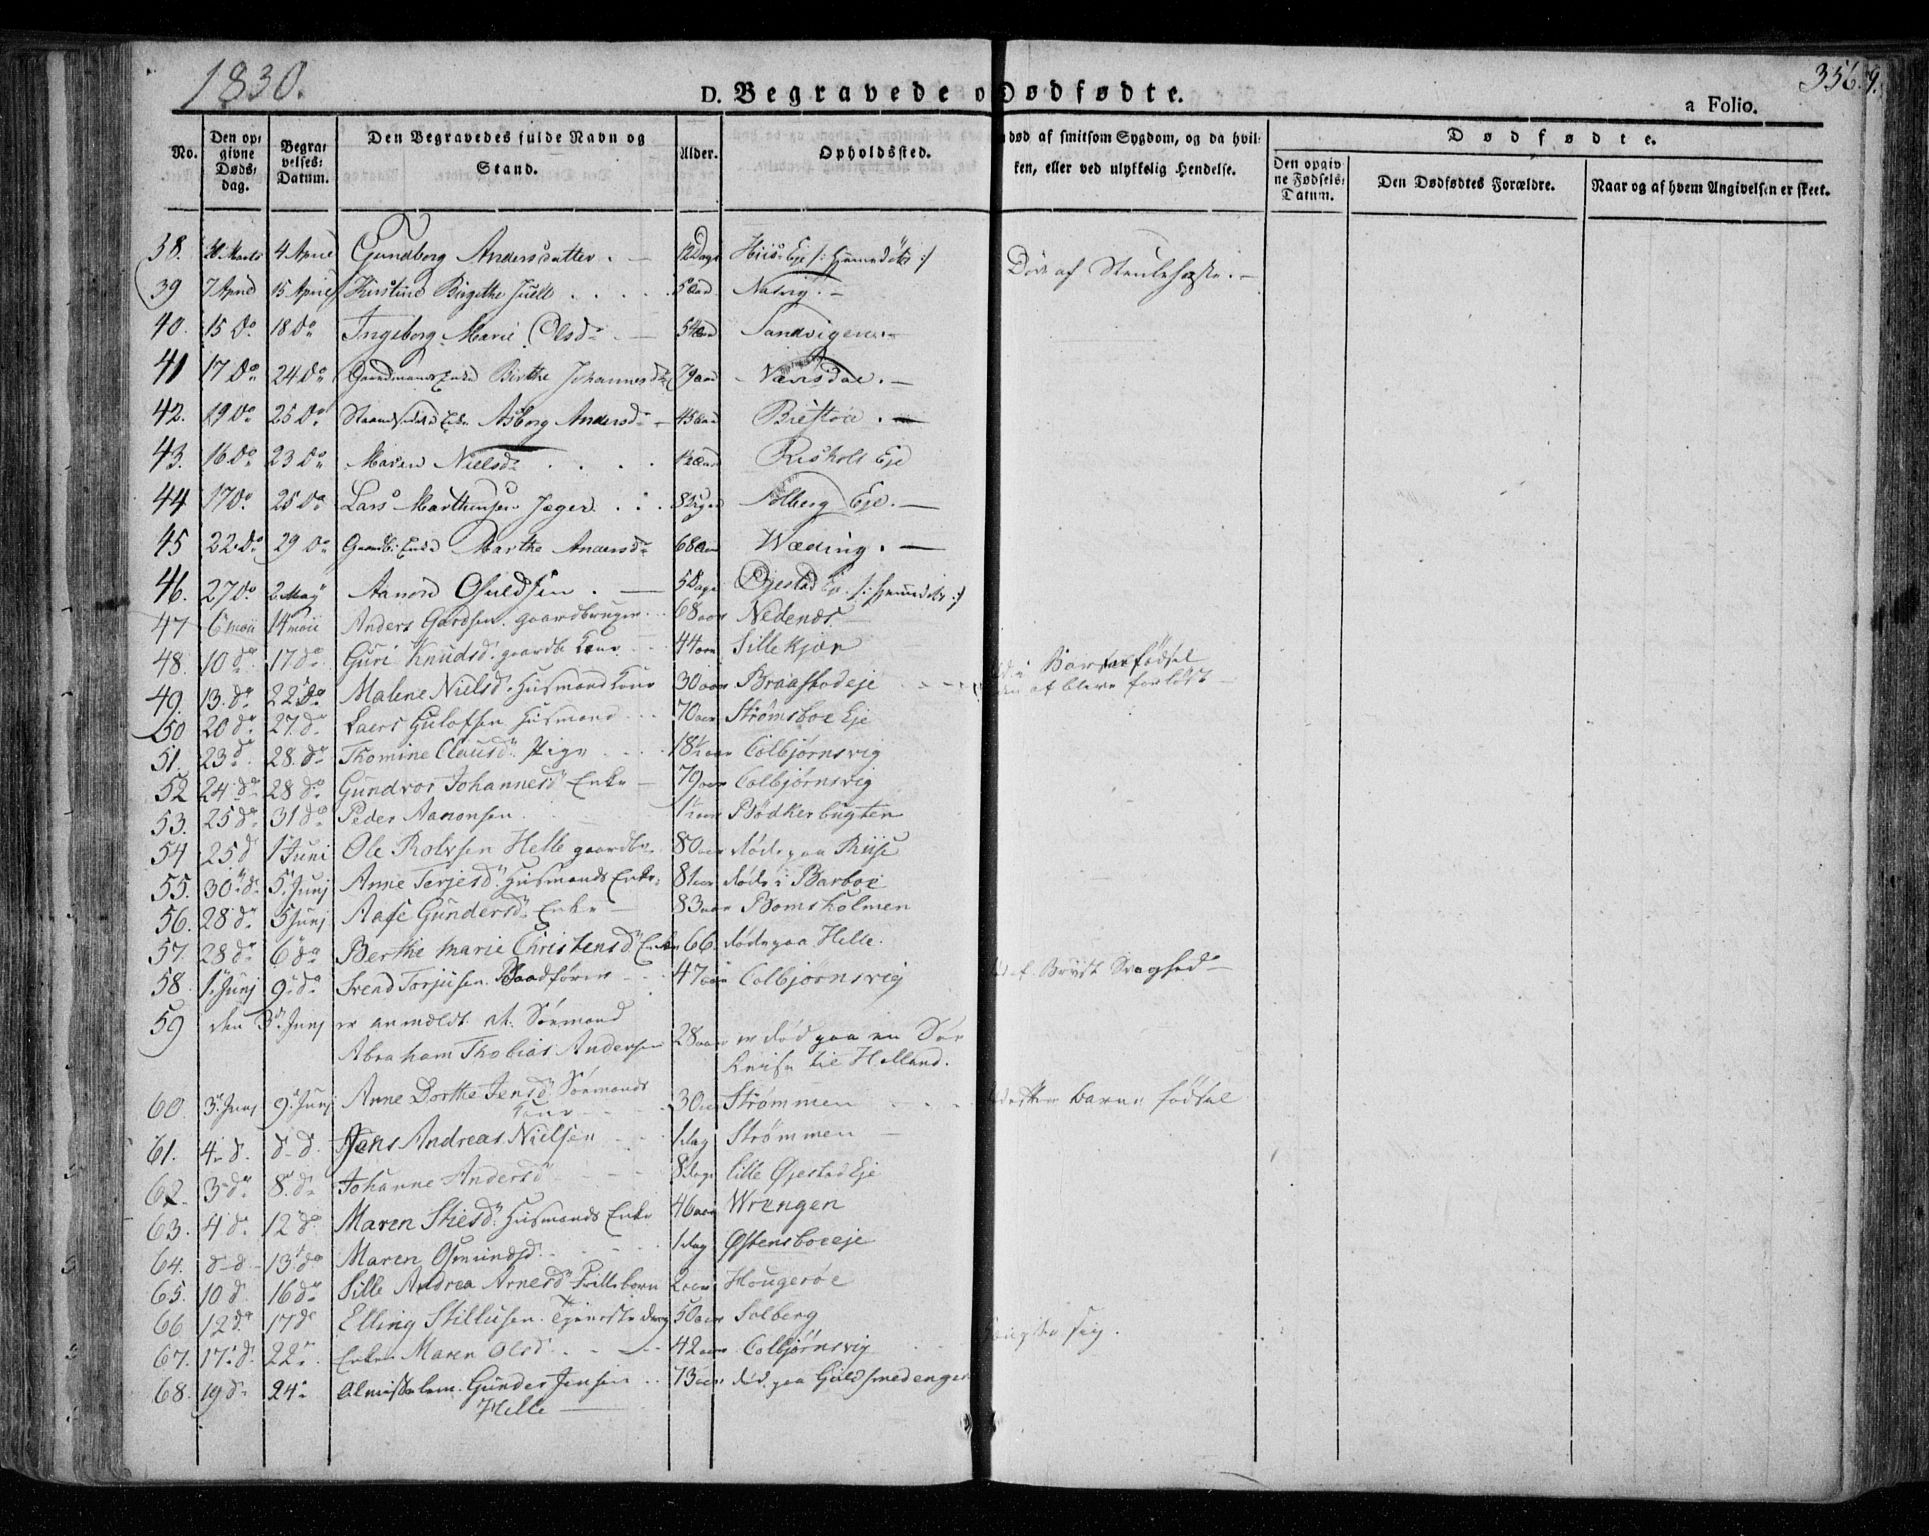 1830.
356. 9.
D. Begravede o Dødfødte.
a Folio.
No. Den op: givne Døds: dag. Begra: velses: Datum. Den Begravedes fulde Navn og Stand. Alder. Opholdssted. død af smitsom Sygdom, og da hvil: ken, eller ved ulykkelig Hendelse. Dødfødte.
Den opgiv ne Fødsels: Datum. Den Dødfødtes Forældre. Naar og af hvem Angivelsen er skeet.
38. Marts 4 April Gundborg Andersdatter. 12 Dage Hiis Eje
39 7 April 15 April Kirstine Birgithe Juell 5 Natvig. Døde af
40. 15 do 18 do Ingeborg Marie Olsd. 54 Sandvigen.
41 17 do 24 do Gaardmands Enke Birthe Johannesd. 79 aar Næsdal.
42. 19 do 25 do Enke Asborg Andersd. 45 Biestøe.
43. 16 do 23 do Maren Nielsd. Risholt Eje
44 17 do 25 do Lars Marthinsen Jæger Solberg Eje.
45 22 do 29 do Enke Marthe Andersd. 68 Wæding.
46. 27 do 2 May Aanon Osuldsen. 5 Dage Øjestad Eje
47 6 maii 14 maii Anders Gardsen. gaardbruger 68 aar Nedenæs
48. 10 do 17 do Guri Knudsd. gaardb. Kone 44 aar Lillekjær
49. 13. do 22 do Malene Nielsd. Husmand Kone 30 aar Braastadeje i Barnefødsel at blive forløst
50 20 do 27. do Laers Gulofsen Husmand 70 aar Strømsboe Eje
51. 23 do 28. do Thomine Clausd. Pige 18½ aar Colbjørnsvig
52 24 do 28 do Gundvor Johannesd. Enke 79 aar Colbjørnsvig
53. 25 do 31 do Peder Aanonsen Bødkerbugten
54 25 d 1 Juni Ole Rolvsen Helle gaardbr. 80 aar døde paa Riise
55. 30 d. 5 Junj Anne Terjesd. Husmands Enke 81 aar døde i Barboe
56. 28 do 5 Junj Aase Gundersd. Enke 83 aar Bomsholmen
57. 28 do 6 do Berthe Marie Christensd. Enke 66. døde paa Helle.
58. 1 Junj 9. do Svend Torjusen. Baadfører 47 aar Colbjørnsvig af Bryst Svaghed
59 den 3 Junj er anmeldt at Sømand
Abraham Thobias Andersen 28 aar er død paa en Søe
Reise til Holland.
60. 3 Junj 9. Junj Anne Dorthe Jensd. Sømands
Kone 30 aar Strømmen barne fødsel
61. 4 d. d. d. Jens Andreas Nielsen 1 dag Strømmen
62. 3 do 8. do Johanne Andersd. 8 dage Lille Øjestad Eje
63. 4 do 12 do Maren Skiesd. Husmands Enke 46 aar Wrengen
64. d. d. 13 do Maren Osmundsd. 1 dag Østensboeeje
65. 10 d. 16 do Sille Andrea Arnesd. 2 aar Hougerøe
66 12 do 17 do Elling Stillufsen. Tjeneste dreng 50 aar Solberg sig.
67. 17. d. 22 Enke Maren Olsd. 42 aar Colbjørnsvig
68. 19 do 24 almisselem. Gunder Jensen 73 aar død paa Guldsmedengen
Helle